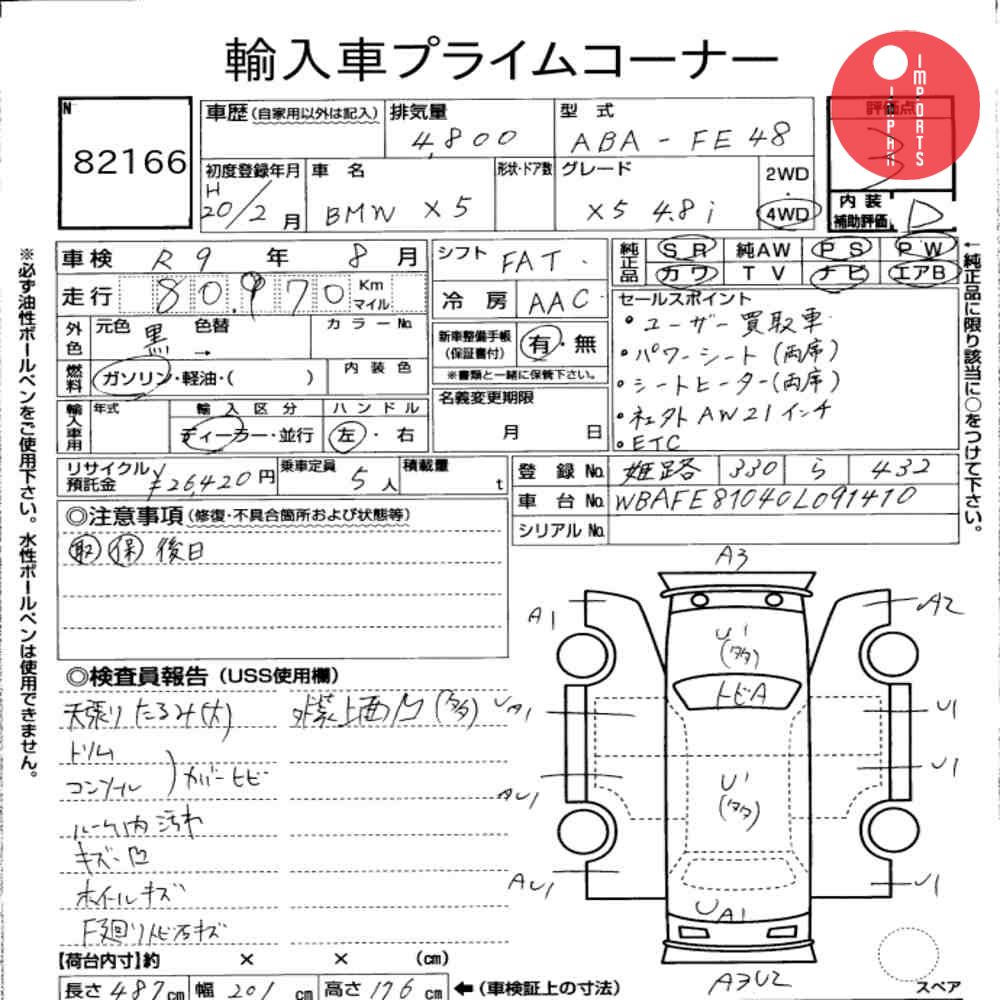 輸入車プライムコーナー
JAPAN IMPORTS
N 82166
車歴(自家用以外は記入) 排気量 4,800 型式 ABA-FE48 評価点 3
初度登録年月 H20/2月 車名 BMW X5 形状・ドア数 グレード X5 4.8i 2WD・4WD 内装補助評価 D
車検 R9年8月 シフト FAT 純正品 SR 純AW PS PW
カワ TV ナビ エアB
走行 80,970 Km マイル 冷房 AAC
セールスポイント
・ユーザー買取車
・パワーシート(両席)
・シートヒーター(両席)
・社外AW21インチ
・ETC
外色 元色 黒 色替 → カラーNo.
新車整備手帳(保証書付) 有・無
※書類と一緒に保管下さい。
燃料 ガソリン・軽油・( ) 内装色
名義変更期限 月 日
輸入車用 年式 輸入区分 ディーラー・並行 ハンドル 左・右
リサイクル預託金 ¥26,420円 乗車定員 5人 積載量 t
登録No. 姫路 330 ら 432
車台No. WBAFE81040L091410
シリアルNo.
◎注意事項(修復・不具合箇所および状態等)
取 保 後日
◎検査員報告(USS使用欄)
天張りたるみ(大) 外装上面凹(多々)
トリム
コンソール )カバーヒビ
ルーム内汚れ
キズ・凹
ホイールキズ
F廻り飛石キズ
A3
A1
A2
U1
(多々)
トビA
UA1
U1
AU1
U1
U1
(多々)
AU1
U1
UA1
A3U2
スペア
【荷台内寸】約 × × (cm)
長さ 487cm 幅 201cm 高さ 176cm ←(車検証上の寸法)
※必ず油性ボールペンをご使用下さい。水性ボールペンは使用できません。
←純正品に限り該当に○をつけて下さい。